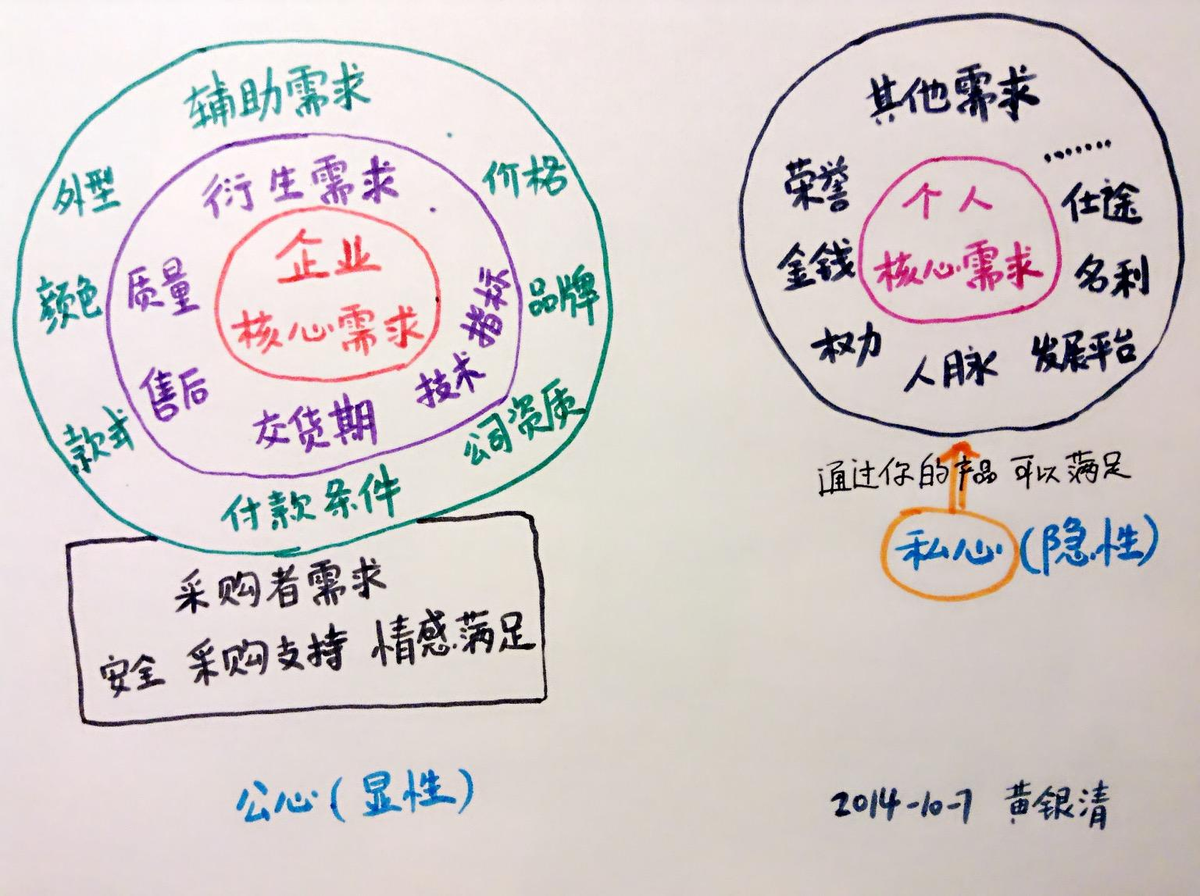 辅助需求
外型
价格
颜色
品牌
款式
公司资质
付款条件
衍生需求
质量
技术指标
售后
交货期
企业
核心需求
采购者需求
安全 采购支持 情感满足
公心(显性)
其他需求
……
荣誉
仕途
金钱
名利
权力
人脉
发展平台
个人
核心需求
通过你的产品 可以满足
私心(隐性)
2014-10-7 黄银清